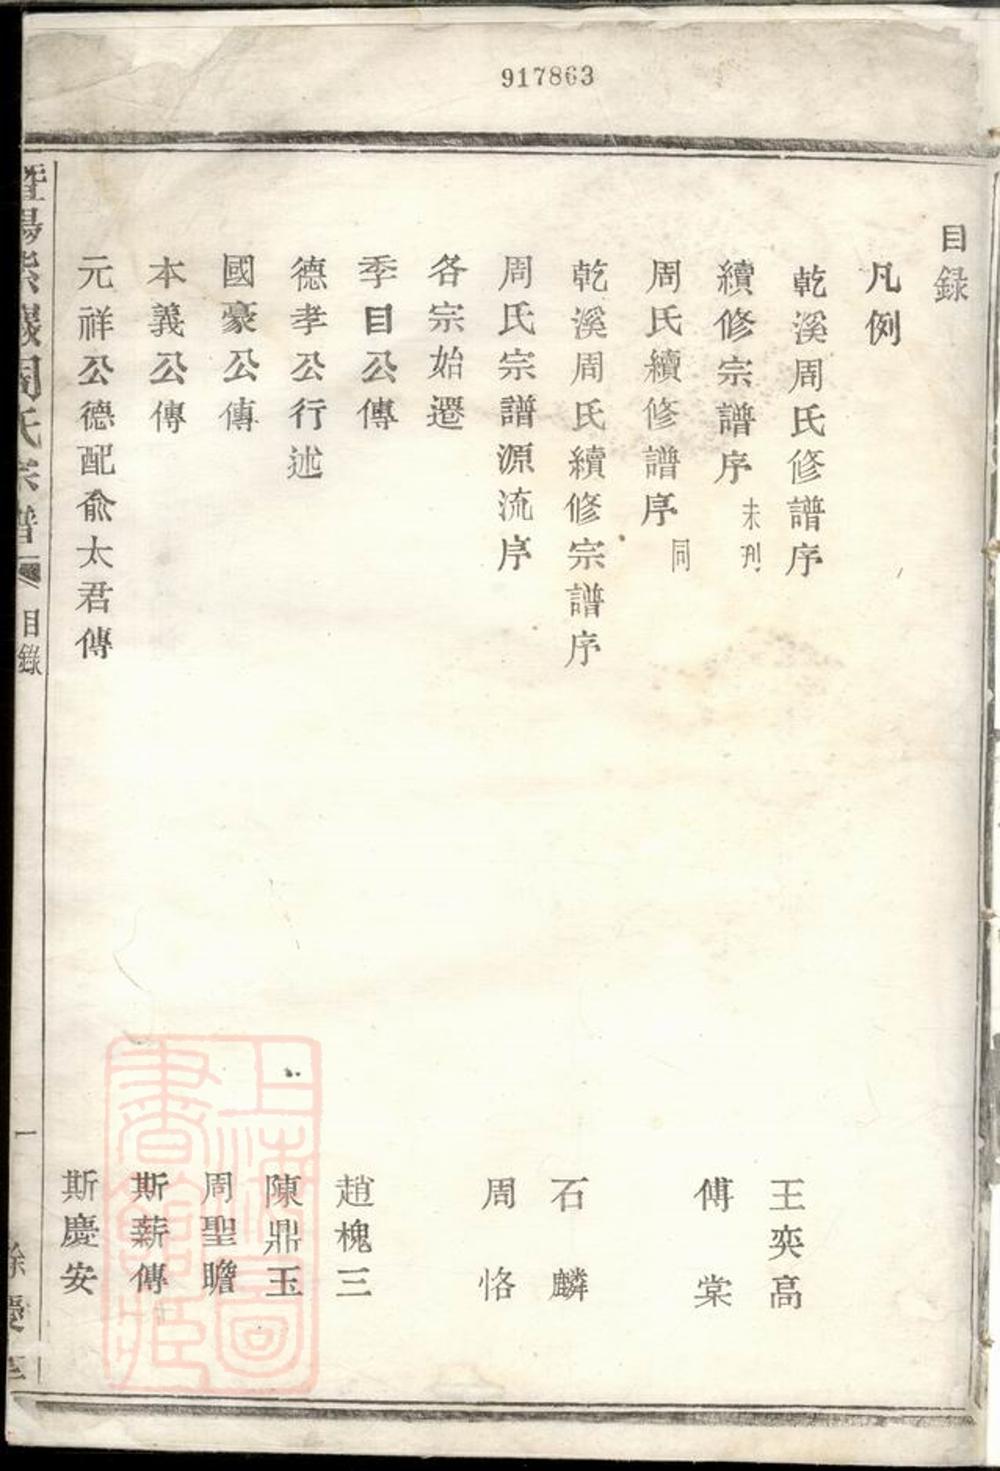 917863
目錄
凡例
乾溪周氏修譜序 王奕高
續修宗譜序 未刋 傅棠
周氏續修譜序 同
乾溪周氏續修宗譜序 石麟
周氏宗譜源流序 周恪
各宗始遷
季目公傳 趙槐三
德孝公行述 陳鼎玉
國豪公傳 周聖瞻
本義公傳 斯薪傳
元祥公德配俞太君傳 斯慶安
周氏宗譜 目錄 一
上海圖書館藏